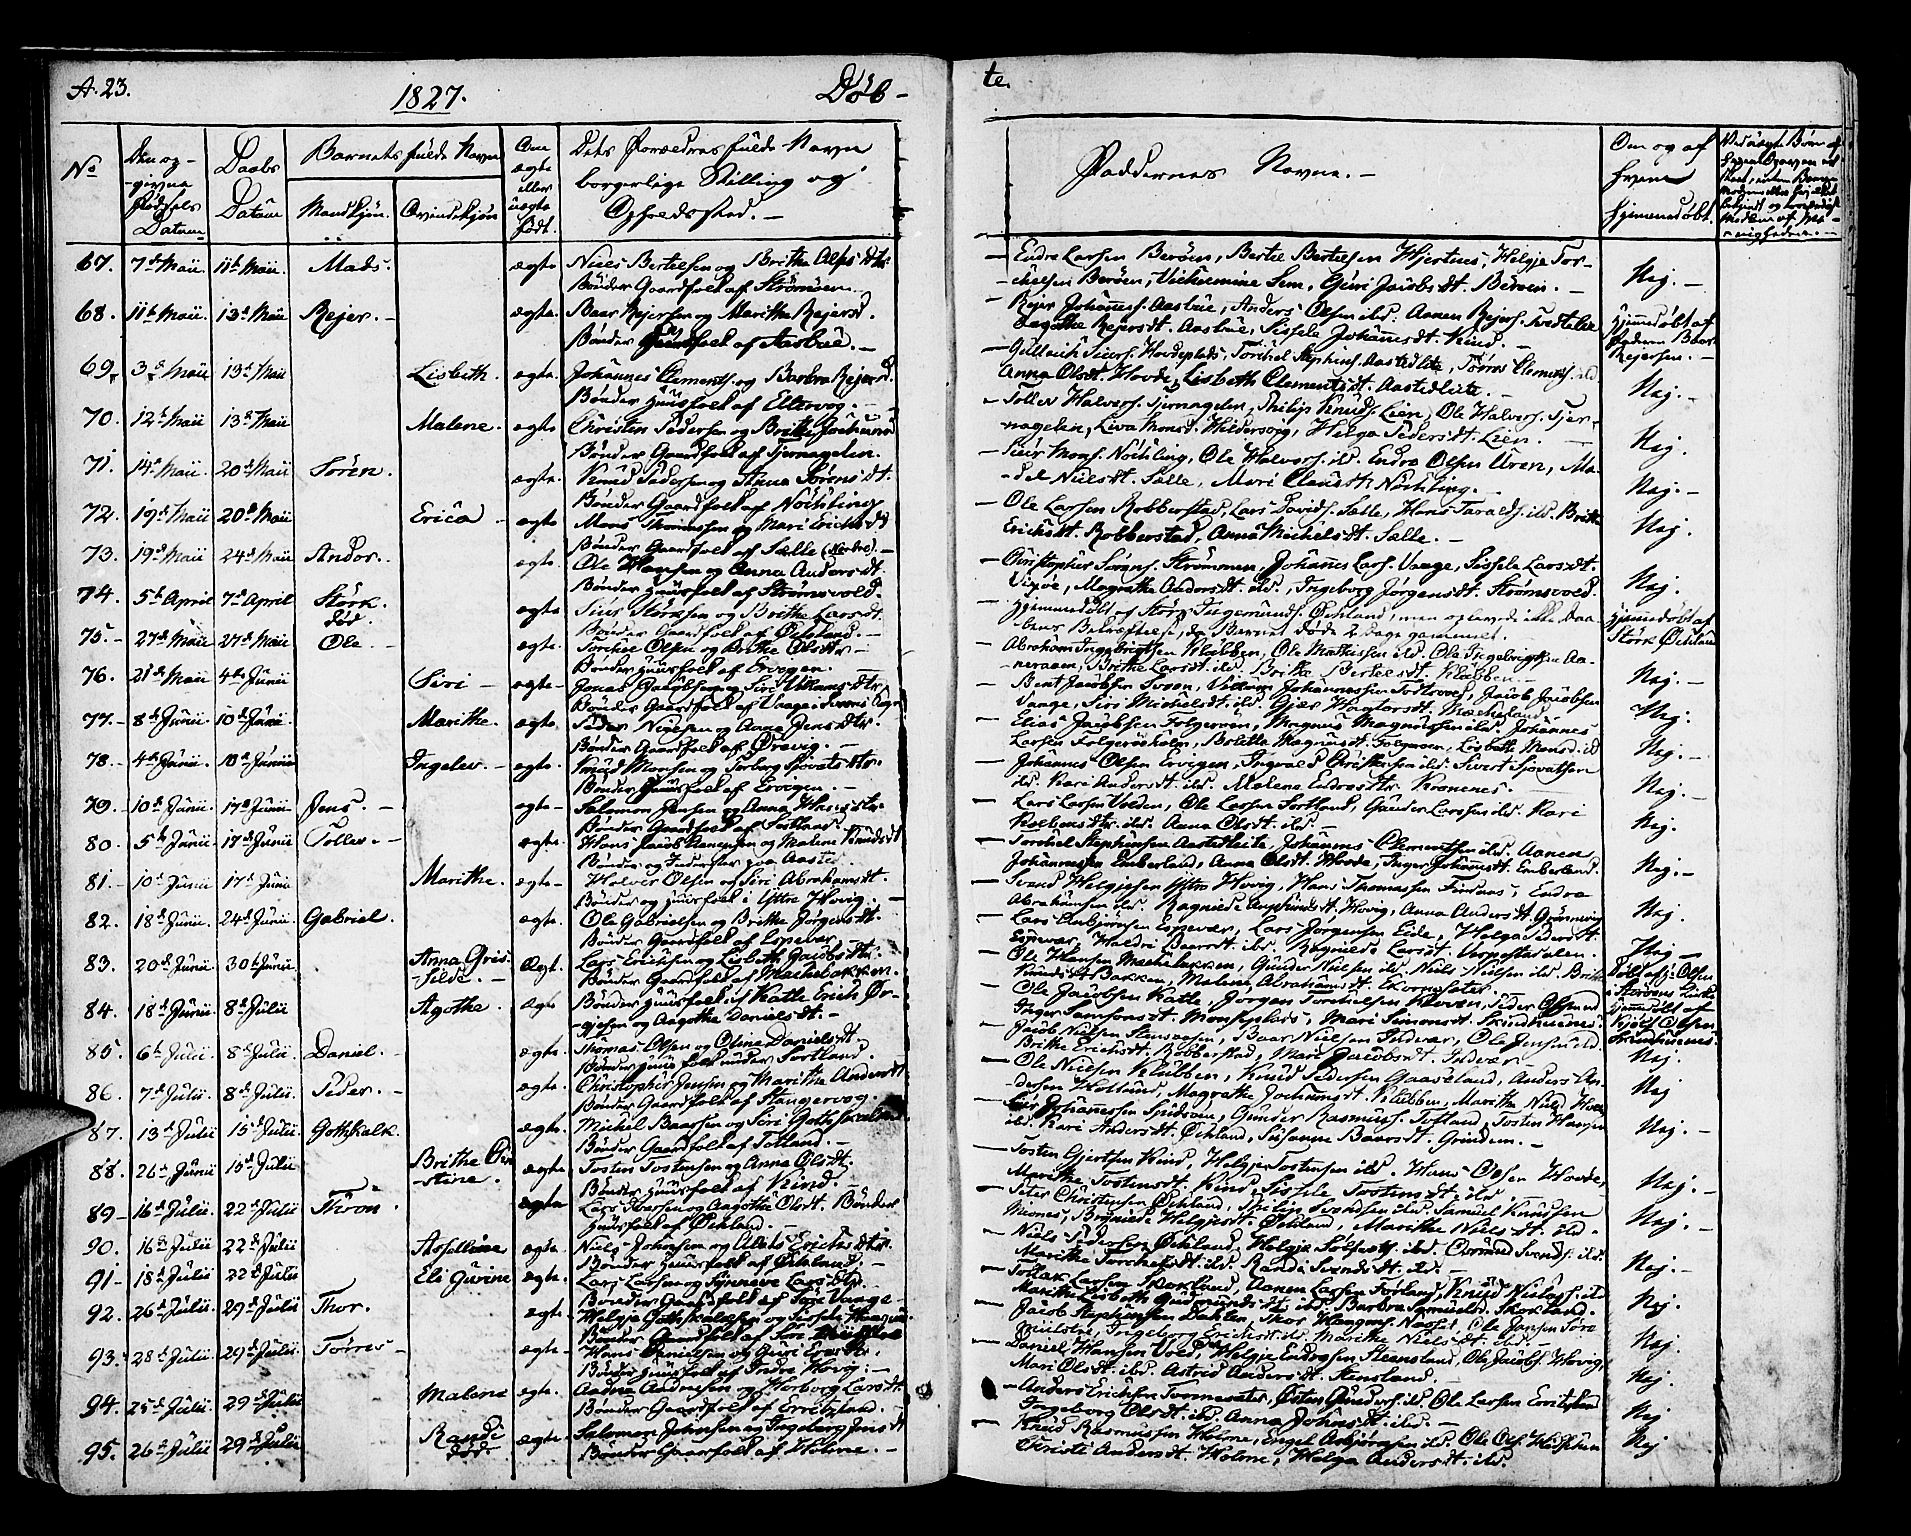 A. 23.
1827.
Døb-
te.
No
Den op-
-givne
Fødsels
Datum
Daabs
Datum
Barnets fulde Navn
Mandkjön.
Qvindekjön
Om
ægte
eller
uægte
født.
Dets Foreldres fulde Navn
borgerlige Stilling og
Opholdssted. -
Faddernes Navne. -
Om og af
hvem
hjemmedöbt.
67. 7d Maii 11te Maii. Mads. ægte
Niels Bertelsen og Brithe Alfsdtr.
Bönder Gaardfolk af Strömöen
- Endre Larsen Beröen, Bertel Bertelsen Hjertnes, Helgje Tor-
-chelsen Beröen, Vilhelmine Sem, Guri Jacobsdt. Beröen. -
Nej. -
68. 11te Maii. 13d Maii Rejer. - ægte.
Baar Rejersen og Marithe Rejersd.
Bönder Huusfolk af Aasbue. -
- Rejer Johannes. Aasbue, Anders Olsen ibd. Aanen Rejers. Tvedtelie
Aagothe Rejersdt. Aasbue, Sissele Johannesdt. Kind. -
Hjemedøbt af
Faderen Baar
Rejersen. -
69. 3d Maii 13d Maii Lisbeth. ægte.
Johannes Clements. og Barbra Rejersd.
Bönder Huusfolk af Ellervog. -
Anna Olsdt. Hovde, Lisbeth Clementsdt. Aastedleite. -
Nej. -
70. 12te Maii 13d Maii Malene. ægte
Christen Pedersen og Brithe Jochumsd
Bönder Gaardfolk af Tjernagelen.
- Tollev Halvors. Tjernagelen, Philip Knuds. Lien, Ole Halvors. Tjer-
-nagelen, Liva Monsd. Hildersøog, Helga Pedersdt. Lien. -
Nej. -
71. 14d Maii. 20d Maii Sören. ægte.
Knud Pedersen og Stina Sörensdt.
Bönder Gaardfolk af Nöchling
- Siur Mons. Nöchling, Ole Halvors. ibd. Endre Olsen Uren, Ma-
-del Nielsdt. Sælle, Mari Clausdt. Nöchling. -
Nej. -
72. 19d Maii 20d Maii Erica - ægte
Mons Thomassen og Mari Erichsdt
Bönder Gaardfolk af Sælle (Nordre). -
- Ole Larsen Robberstad, Lars Davids. Sælle, Hans Taralds. ibd. Brithe
Erichsdt. Robberstad, Anna Michelsdt. Sælle. -
Nej.
73. 19d Maii 24d Maii Andor. ægte.
Ole Hansen og Anna Andorsdt
Bönder Huusfolk af Strömsvold.
- Christopher Sörens. Strömmen, Johannes Lars. Vaage, Sissele Larsdt.
Vixöe, Magrethe Andorsdt. ibd., Ingeborg Jörgensdt. Strömsvold.
Nej.
74. 5te April 7d April Störk.
död. ægte
Sius Störksen og Brithe Larsdt
Bönder Gaardfolk af Öchland. -
Hjemmedöbt af Störk Ingemunds. Öchland, men oplevede ikke Daa-
bens Bekræftelse, da Barnet døde 2 Dage gammel. -
Hjemmedöbt af
Störk Öchland
75. - 27d Maii 27d Maii Ole. ægte.
Torchel Olsen og Brithe Olsdtr -
Bönder Huusfolk af Ervigen. -
Abraham Ingebrigtsen Klubben, Ole Mathissen ibd. Ole Ingebrigtsen Aa-
-neraaen, Brithe Larsdt. ibd. Brithe Bertelsdt. Klubben -
Nej. -
76. 21d Maii 4de Junii Siri - ægte
Jonas Jacobsen og Siri Villumsdtr
Bönder Gaardfolk af Vaage, Svens Sogn
- Bent Jacobsen Svöen, Villum Johannessen Todterøes, Jacob Jacobsen
Vaage, Siri Michelsdt. ibd. Gjær Hagtorsdt. Mæheland. -
Nej.
77. - 8d Junii 10d Junii Marithe. ægte.
Peder Nielsen og Anna Jensdtr.
Bönder Gaardfolk af Örevig. -
- Elias Jacobsen Folgeröen, Magnus Magnussen ibd. Johannes
Larsen Folgeröeholm, Bolette Magnusdt. Folgeröen, Lisbeth Monsd. ibd
Nej. -
78. - 4de Junii. 10d Junii Ingelev. - ægte.
Knud Monsen og Torborg Sjovatsdtr.
Bönder Huusfolk af Ervigen. -
- Johannes Olsen Ervigen, Ingvald Christensen ibd. Sivert Sjovatsen
ibd. Kari Andersdt. ibd. Malene Endresdtr Kronenes. -
Nej. -
79. 10d Junii. 17d Junii Jens. - ægte.
Salomon Jensen og Anna Hansdtr.
Bönder Gaardfolk af Tortland. -
- Lars Larsen Volden, Ole Larsen Tortland, Gunder Larsen ibd. Kari
Kolbensdtr. ibd. Anna Olsdt. ibd. -
Nej.
80. 5te Junii. 17d Junii Tollev. - ægte.
Hans Jacob Hansen og Malene Knudsdt
Bönder og Inderster paa Aasted. -
- Torchel Stephensen Aastedleite, Johannes Clementsen ibd. Aanen
Johannessen Emberland, Anna Olsdt. Hovde, Inger Johannesdt. Emberland.
Nej. -
81. - 10d Junii 17d Junii Marithe. ægte -
Halvor Olsen og Siri Abrahamsdt.
Bönder og Huusfolk i Yttre Hovig. -
- Svend Helgjesen Yttre Hovig, Hans Thomassen Finsaas, Endre
Abrahamsen ibd. Ragnilde Amundsdt. Hovig, Anna Andersdt. Grönnevig
Nej.
82. 18d Junii. 24d Junii. Gabriel. ægte.
Ole Gabrielsen og Brithe Jörgensdt.
Bönder Gaardfolk af Espevær. -
- Lars Aanbjörnsen Espevær, Lars Jörgensen Eide, Helga Pedersdt.
Espevær, Valdri Baarsdt. ibd. Ragnilde Larsdt. Vespestadalen.
Nej -
83. 20d Junii 30te Junii. Anna Gris
-silde. - ægte.
Lars Ericksen og Lisbeth Jacobsdtr.
Bönder Gaardfolk af Mæhlebakken. -
- Ole Hansen Mæhlebakken, Gunder Nielsen ibd. Niels Nielsen ibd. Brithe
Knudsdt. Bakken, Malene Abrahamsdt. Skornesæter. -
84. 18d Junii 8de Julii Agothe. - ægte
Bönder Huusfolk af Katle Erich Ör-
-gjesen og Aagothe Danielsdt. -
- Ole Jacobsen Katle, Jörgen Torchelsen Kloven, Peder Olsen
Inger Samsonsdt. Monseplads, Mari Simonsdt. Skinhuenes.
Hjemmedöbt af
Kjöld Olsen
Skrinhuenes -
85. 6te Julii. 8de Julii Daniel. - ægte.
Thomas Olsen og Oline Danielsdt
Bönder Huusfolk under Tortland. -
- Jacob Nielsen Stensaasen, Baar Nielsen Indvær, Ole Jensen ibd.
Brithe Erichsdt. Robberstad, Mari Jacobsdt. Indvær. -
Nej.
86. 7de Julii 8de Julii Peder. - ægte.
Christopher Jensen og Marithe Andersdt
Bönder Gaardfolk af Stangervog. -
- Ole Nielsen Klubben, Knud Pedersen Gaaseland, Anders An-
-dersen Hollund, Magrethe Jochumsdt. Klubben, Marithe Niels. Hovde
Nej
87. 13d Julii 15de Julii. Gothskalk. ægte.
Michel Baarsen og Siri Gothskalksd
Bönder Gaardfolk af Totland. -
- Siur Johannessen Spidsöen, Gunder Rasmuss. Totland, Tosten Hansen
ibd. Kari Andersdt. Öchland, Susanne Baarsdt. Grindem. -
Nej. -
88. 26d Junii 15d Julii Brithe Chri
-stine. - ægte
Tosten Tostensen og Anna Olsdt.
Bönder Huusfolk af Kind. -
- Tosten Gjertsen Kind, Helgje Tostensen ibd. Hans Olsen Hovde,
Marithe Tostensdt. Kind, Sissele Tostensdt. ibd.
Nej. -
89 - 16d Julii 22d Julii Thron. - ægte
Lars Iversen og Aagothe Olsdt. Bönder
Huusfolk af Öchland. -
- Peter Christensen Öchland, Philip Svendsen ibd. Samuel Knudsen
Mosnes, Bronilde Helgjesdt. Öchland, Marithe Nielsdt. ibd. -
Nej. -
90. 16d Julii 22d Julii Aselline ægte.
Niels Johnsen og Alets Erichsdtr.
Bönder Huusfolk af Öchland. -
- Niels Pedersen Öchland, Helgje Solfestsn. ibd. Ormund Svends. ibd.
Marithe Torchelsdt. ibd. Randi Svendsdt. ibd. -
Nej. -
91 - 18d Julii 22d Julii Eli Gurine ægte.
Lars Larsen og Synneve Larsdtr.
Bönder Gaardfolk af Töre Vaage -
- Tollak Larsen Skokland, Aanen Larsen Forland, Knud Nielsen ibd
Marithe Lisbeth Gudmundsdt. ibd. Barbra Samuelsd. Skokland.
Nej
92. 26d Julii. 29de Julii Thor. ægte.
Helgje Gothskalksen og Sissele
- Jacob Stephensen Dahlen, Thor Hougens. Næsset, Ole Jansen Töre
Ingeborg Erichsdt. Marithe Nielsdt. ibd. -
Nej.
93. 28de Julii. 29de Julii Törres - ægte -
Hans Danielsen og Guri Larsdtr.
Bönder Huusfolk af Indre Hovig. -
- Daniel Hansen Vold, Helgje Endresen Steensland, Ole Jacobs. Hovig,
Mari Olsdt. ibd. Astrid Andersdt. Stensland. -
Nej.
94. 25de Julii. 29de Julii Malene ægte.
Aadne Aadnesen og Horborg Larsdt
Bönder Gaardfolk af Erritzland. -
- Anders Erichsen Tormesæter, Östen Gunders. ibd. Ole Larsen Erritzland
Ingeborg Olsdt. ibd. Anna Johnsdt. ibd. -
Nej
95. 26de Julii 29de Julii Rande
död. ægte.
Salomon Johnsen og Ingeborg Jensdt
Bönder Gaarfolk af Holme. -
- Knud Rasmussen Holme, Engel Asbjörnsen ibd. Ole Ols.
Christi Andersdt. Holme, Helga Andersdt. ibd.
Nej